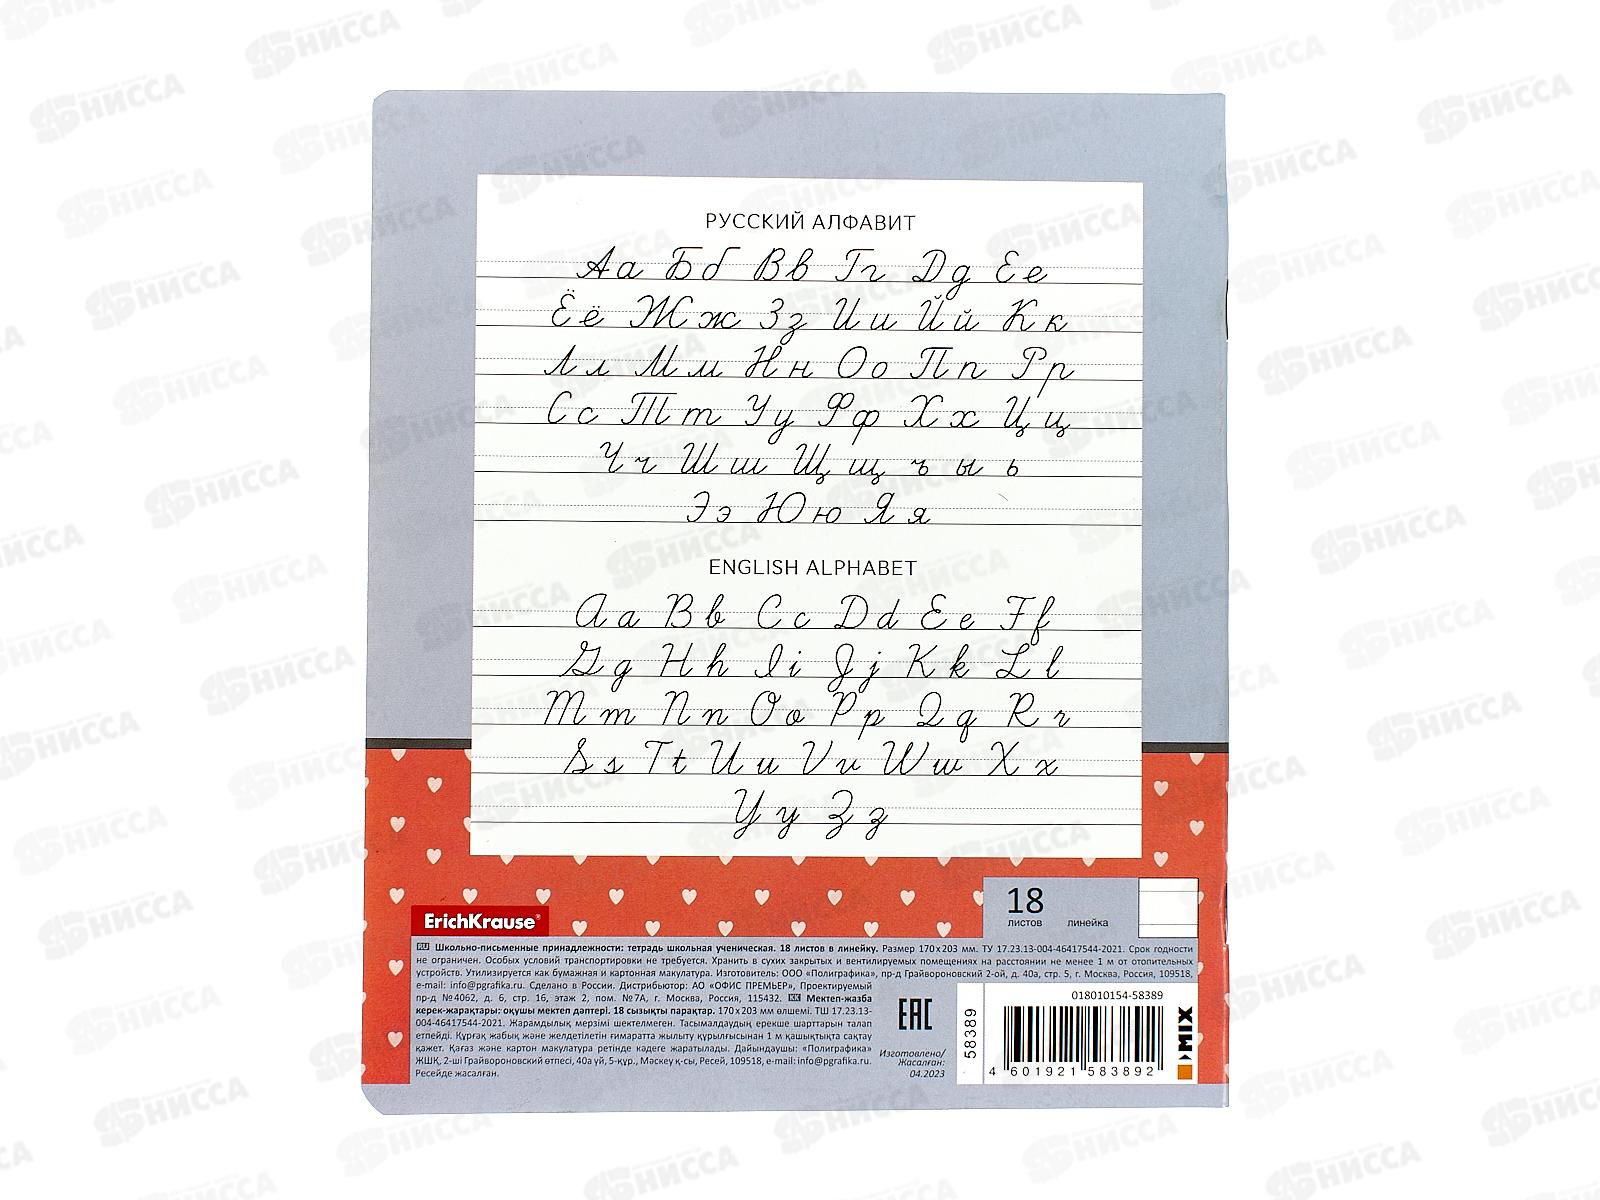 РУССКИЙ АЛФАВИТ
Аа Бб Вв Гг Дд Ее
Ёё Жж Зз Ии Йй Кк
Лл Мм Нн Оо Пп Рр
Сс Тт Уу Фф Хх Цц
Чч Шш Щщ ъ ы ь
Ээ Юю Яя
ENGLISH ALPHABET
Aa Bb Cc Dd Ee Ff
Gg Hh Ii Jj Kk Ll
Mm Nn Oo Pp Qq Rr
Ss Tt Uu Vv Ww Xx
Yy Zz
18
листов линейка
ErichKrause®
RU Школьно-письменные принадлежности: тетрадь школьная ученическая. 18 листов в линейку. Размер 170х203 мм. ТУ 17.23.13-004-46417544-2021. Срок годности
не ограничен. Особых условий транспортировки не требуется. Хранить в сухих закрытых и вентилируемых помещениях на расстоянии не менее 1 м от отопительных
устройств. Утилизируется как бумажная и картонная макулатура. Изготовитель: ООО «Полиграфика», пр-д Грайвороновский 2-ой, д. 40а, стр. 5, г. Москва, Россия, 109518,
e-mail: info@pgrafika.ru. Сделано в России. Дистрибьютор: АО «ОФИС ПРЕМЬЕР», Проектируемый
пр-д №4062, д. 6, стр. 16, этаж 2, пом. №7А, г. Москва, Россия, 115432. KK Мектеп-жазба
керек-жарақтары: оқушы мектеп дәптері. 18 сызықты парақтар. 170х203 мм өлшемі. ТШ 17.23.13-
004-46417544-2021. Жарамдылық мерзімі шектелмеген. Тасымалдаудың ерекше шарттарын талап
етпейді. Құрғақ жабық және желдетілетін ғимаратта жылыту құрылғысынан 1 м қашықтықта сақтау
қажет. Қағаз және картон макулатура ретінде кәдеге жаратылады. Дайындаушы: «Полиграфика»
ЖШҚ, 2-ші Грайвороновский өтпесі, 40а үй, 5-құр., Мәскеу қ-сы, Ресей, 109518, e-mail: info@pgrafika.ru.
Ресейде жасалған.
EAC
Изготовлено/
Жасалған:
04.2023
58389
018010154-58389
4 601921 583892
MIX
АБНИССА